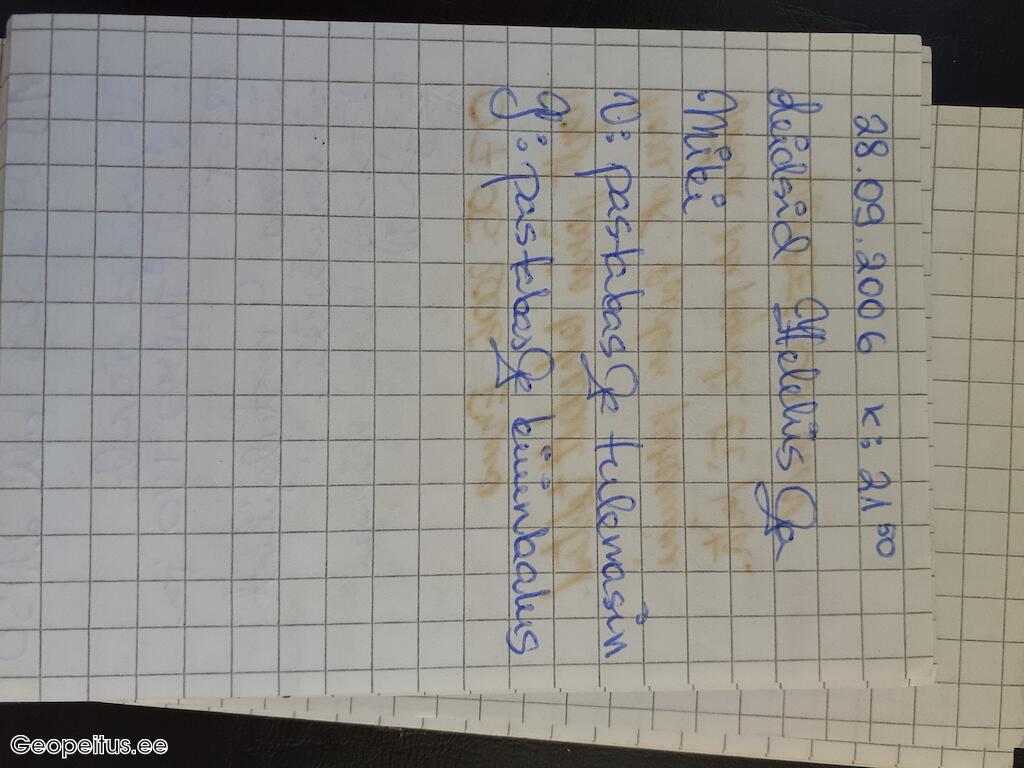 28.09.2006 K: 21 50
leidsid Heleliis ja
Miki
V: pastakas ja tulemasin
J: pastakas ja küünlaalus
Geopeitus.ee